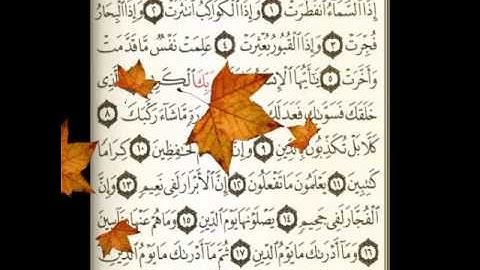 إِذَا ٱلسَّمَآءُ ٱنفَطَرَتۡ ١ وَإِذَا ٱلۡكَوَاكِبُ ٱنتَثَرَتۡ ٢ وَإِذَا ٱلۡبِحَارُ
فُجِّرَتۡ ٣ وَإِذَا ٱلۡقُبُورُ بُعۡثِرَتۡ ٤ عَلِمَتۡ نَفۡسٞ مَّا قَدَّمَتۡ
وَأَخَّرَتۡ ٥ يَٰٓأَيُّهَا بِكَ
خَلَقَكَ فَسَوَّىٰكَ فَعَدَلَكَ مَّا شَآءَ رَكَّبَكَ ٨
كَلَّا بَلۡ تُكَذِّبُونَ ٩ وَإِنَّ لَحَٰفِظِينَ ١٠ كِرَامٗا
كَٰتِبِينَ ١١ يَعۡلَمُونَ مَا تَفۡعَلُونَ ١٢ إِنَّ ٱلۡأَبۡرَارَ لَفِي نَعِيمٖ ١٣ وَإِنَّ
ٱلۡفُجَّارَ لَفِي جَحِيمٖ ١٤ يَصۡلَوۡنَهَا يَوۡمَ ٱلدِّينِ ١٥ وَمَا هُمۡ عَنۡهَا بِغَآئِبِينَ
١٦ وَمَآ أَدۡرَىٰكَ مَا يَوۡمُ ٱلدِّينِ ١٧ ثُمَّ مَآ أَدۡرَىٰكَ مَا يَوۡمُ ٱلدِّينِ